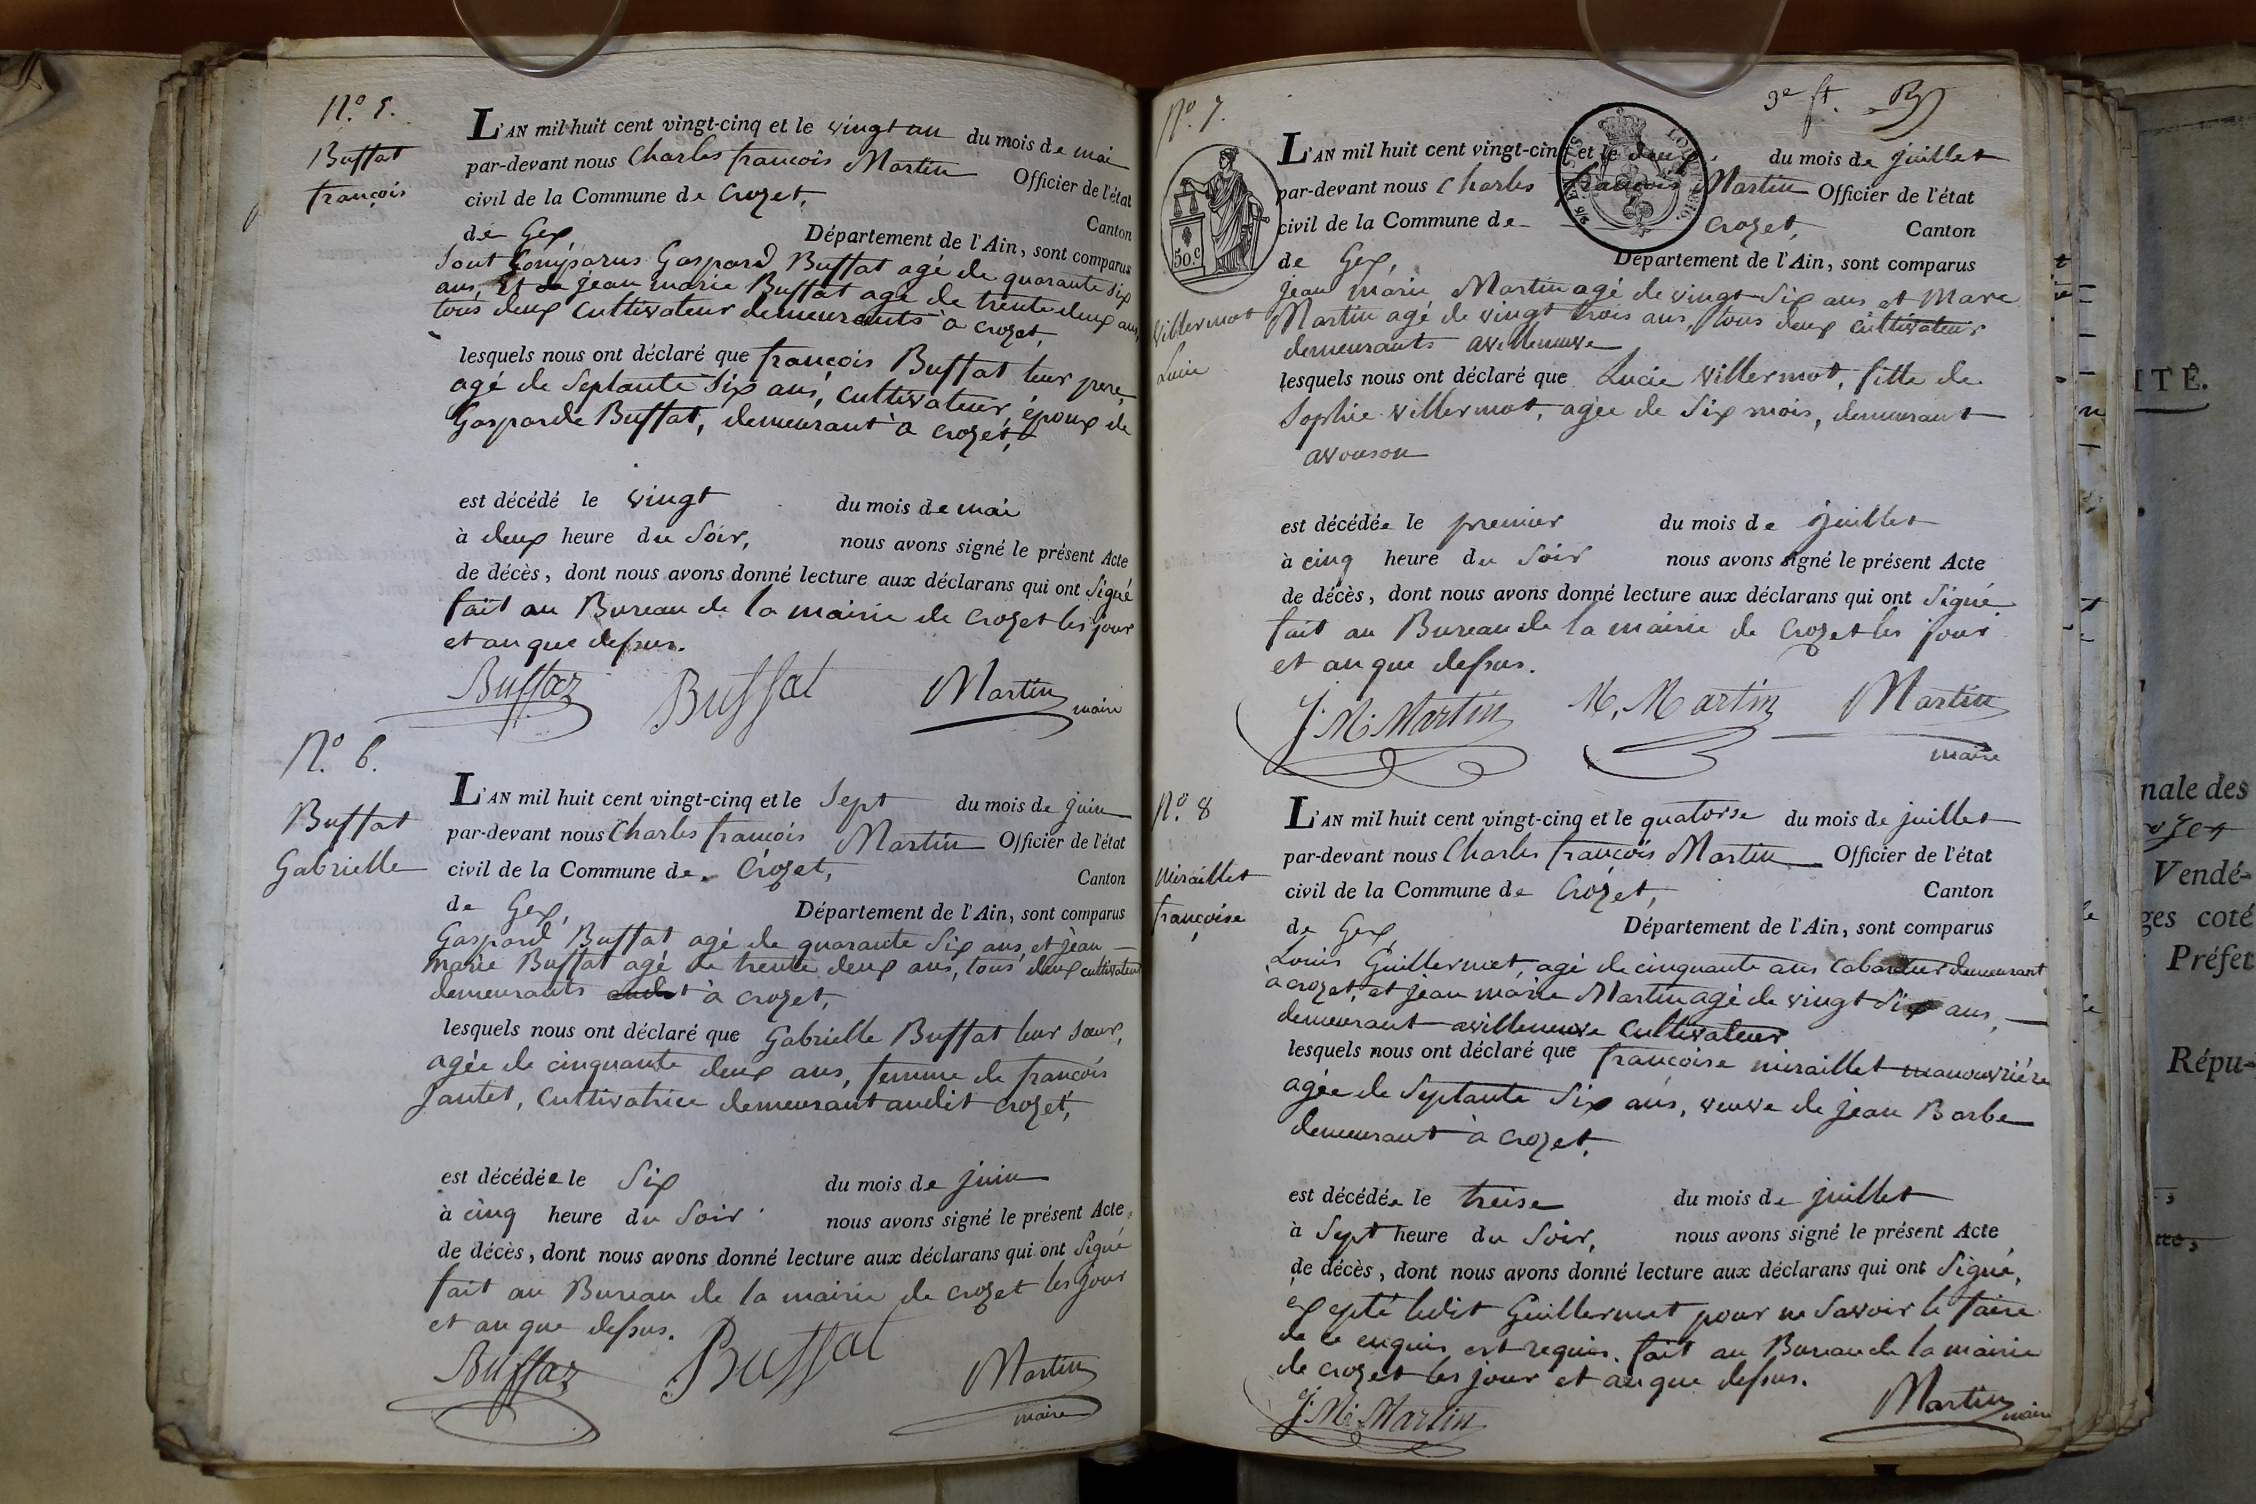 N.° 5.
Buffat
françois
L'AN mil huit cent vingt-cinq et le vingt un du mois de mai
par-devant nous Charles françois Martin Officier de l'état
civil de la Commune de Crozet, Canton
de Gex Département de l'Ain, sont comparus
Sont Comparus Gaspard Buffat agé de quarante six
ans, et jean marie Buffat agé de trente deux ans,
tous deux Cultivateur demeurants à crozet,
lesquels nous ont déclaré que françois Buffat leur pere,
agé de Septante Six ans, Cultivateur, époux de
Gasparde Buffat, demeurant à crozet,
est décédé le vingt du mois de mai
à deux heure du Soir, nous avons signé le présent Acte
de décès, dont nous avons donné lecture aux déclarans qui ont Signé
fait au Bureau de la mairie de crozet les jour
et an que dessus.
Buffaz Buffat Martin
maire
N.° 6.
Buffat
Gabrielle
L'AN mil huit cent vingt-cinq et le Sept du mois de juin
par-devant nous Charles françois Martin Officier de l'état
civil de la Commune de Crozet, Canton
de Gex, Département de l'Ain, sont comparus
Gaspard Buffat agé de quarante Six ans, et jean
marie Buffat agé de trente deux ans, tous deux cultivateur
demeurants à crozet,
lesquels nous ont déclaré que Gabrielle Buffat leur sœur,
agée de cinquante deux ans, femme de françois
Jantet, Cultivatrice demeurant audit crozet,
est décédée le Six du mois de juin
à cinq heure du Soir nous avons signé le présent Acte
de décès, dont nous avons donné lecture aux déclarans qui ont Signé
fait au Bureau de la mairie de crozet les jour
et an que dessus.
Buffaz Buffat Martin
maire
9e ft.
N.° 7.
50.c
Villermot
Lucie
L'AN mil huit cent vingt-cinq et le deux du mois de juillet
par-devant nous Charles françois Martin Officier de l'état
civil de la Commune de Crozet, Canton
de Gex, Département de l'Ain, sont comparus
jean marie Martin agé de vingt Six ans et Marc
Martin agé de vingt trois ans, tous deux cultivateur
demeurants avilleneuve
lesquels nous ont déclaré que Lucie Villermot, fille de
Sophie villermot, agée de Six mois, demeurant
avouson
est décédée le premier du mois de juillet
à cinq heure du Soir nous avons signé le présent Acte
de décès, dont nous avons donné lecture aux déclarans qui ont Signé.
fait au Bureau de la mairie de Crozet les jour
et an que dessus.
J. M. Martin M. Martin Martin
maire
N.° 8
Miraillet
françoise
L'AN mil huit cent vingt-cinq et le quatorse du mois de juillet
par-devant nous Charles françois Martin Officier de l'état
civil de la Commune de Crozet, Canton
de Gex, Département de l'Ain, sont comparus
Louis Guillermet, agé de cinquante ans demeurant
à crozet, et jean marie Martin agé de vingt Six ans,
demeurant avilleneuve Cultivateur
lesquels nous ont déclaré que françoise miraillet manouvriére
agée de Septante Six ans, veuve de jean Barbe
demeurant à crozet,
est décédée le treise du mois de juillet
à Sept heure du Soir, nous avons signé le présent Acte
de décès, dont nous avons donné lecture aux déclarans qui ont Signé,
ex epté ledit Guillermet pour ne Savoir le faire
de ce enquis est requis. fait au Bureau de la mairie
de crozet les jour et an que dessus.
J. M. Martin Martin
maire
ITÉ.
nale des
Vendé-
ges coté
Préfet
Répu-